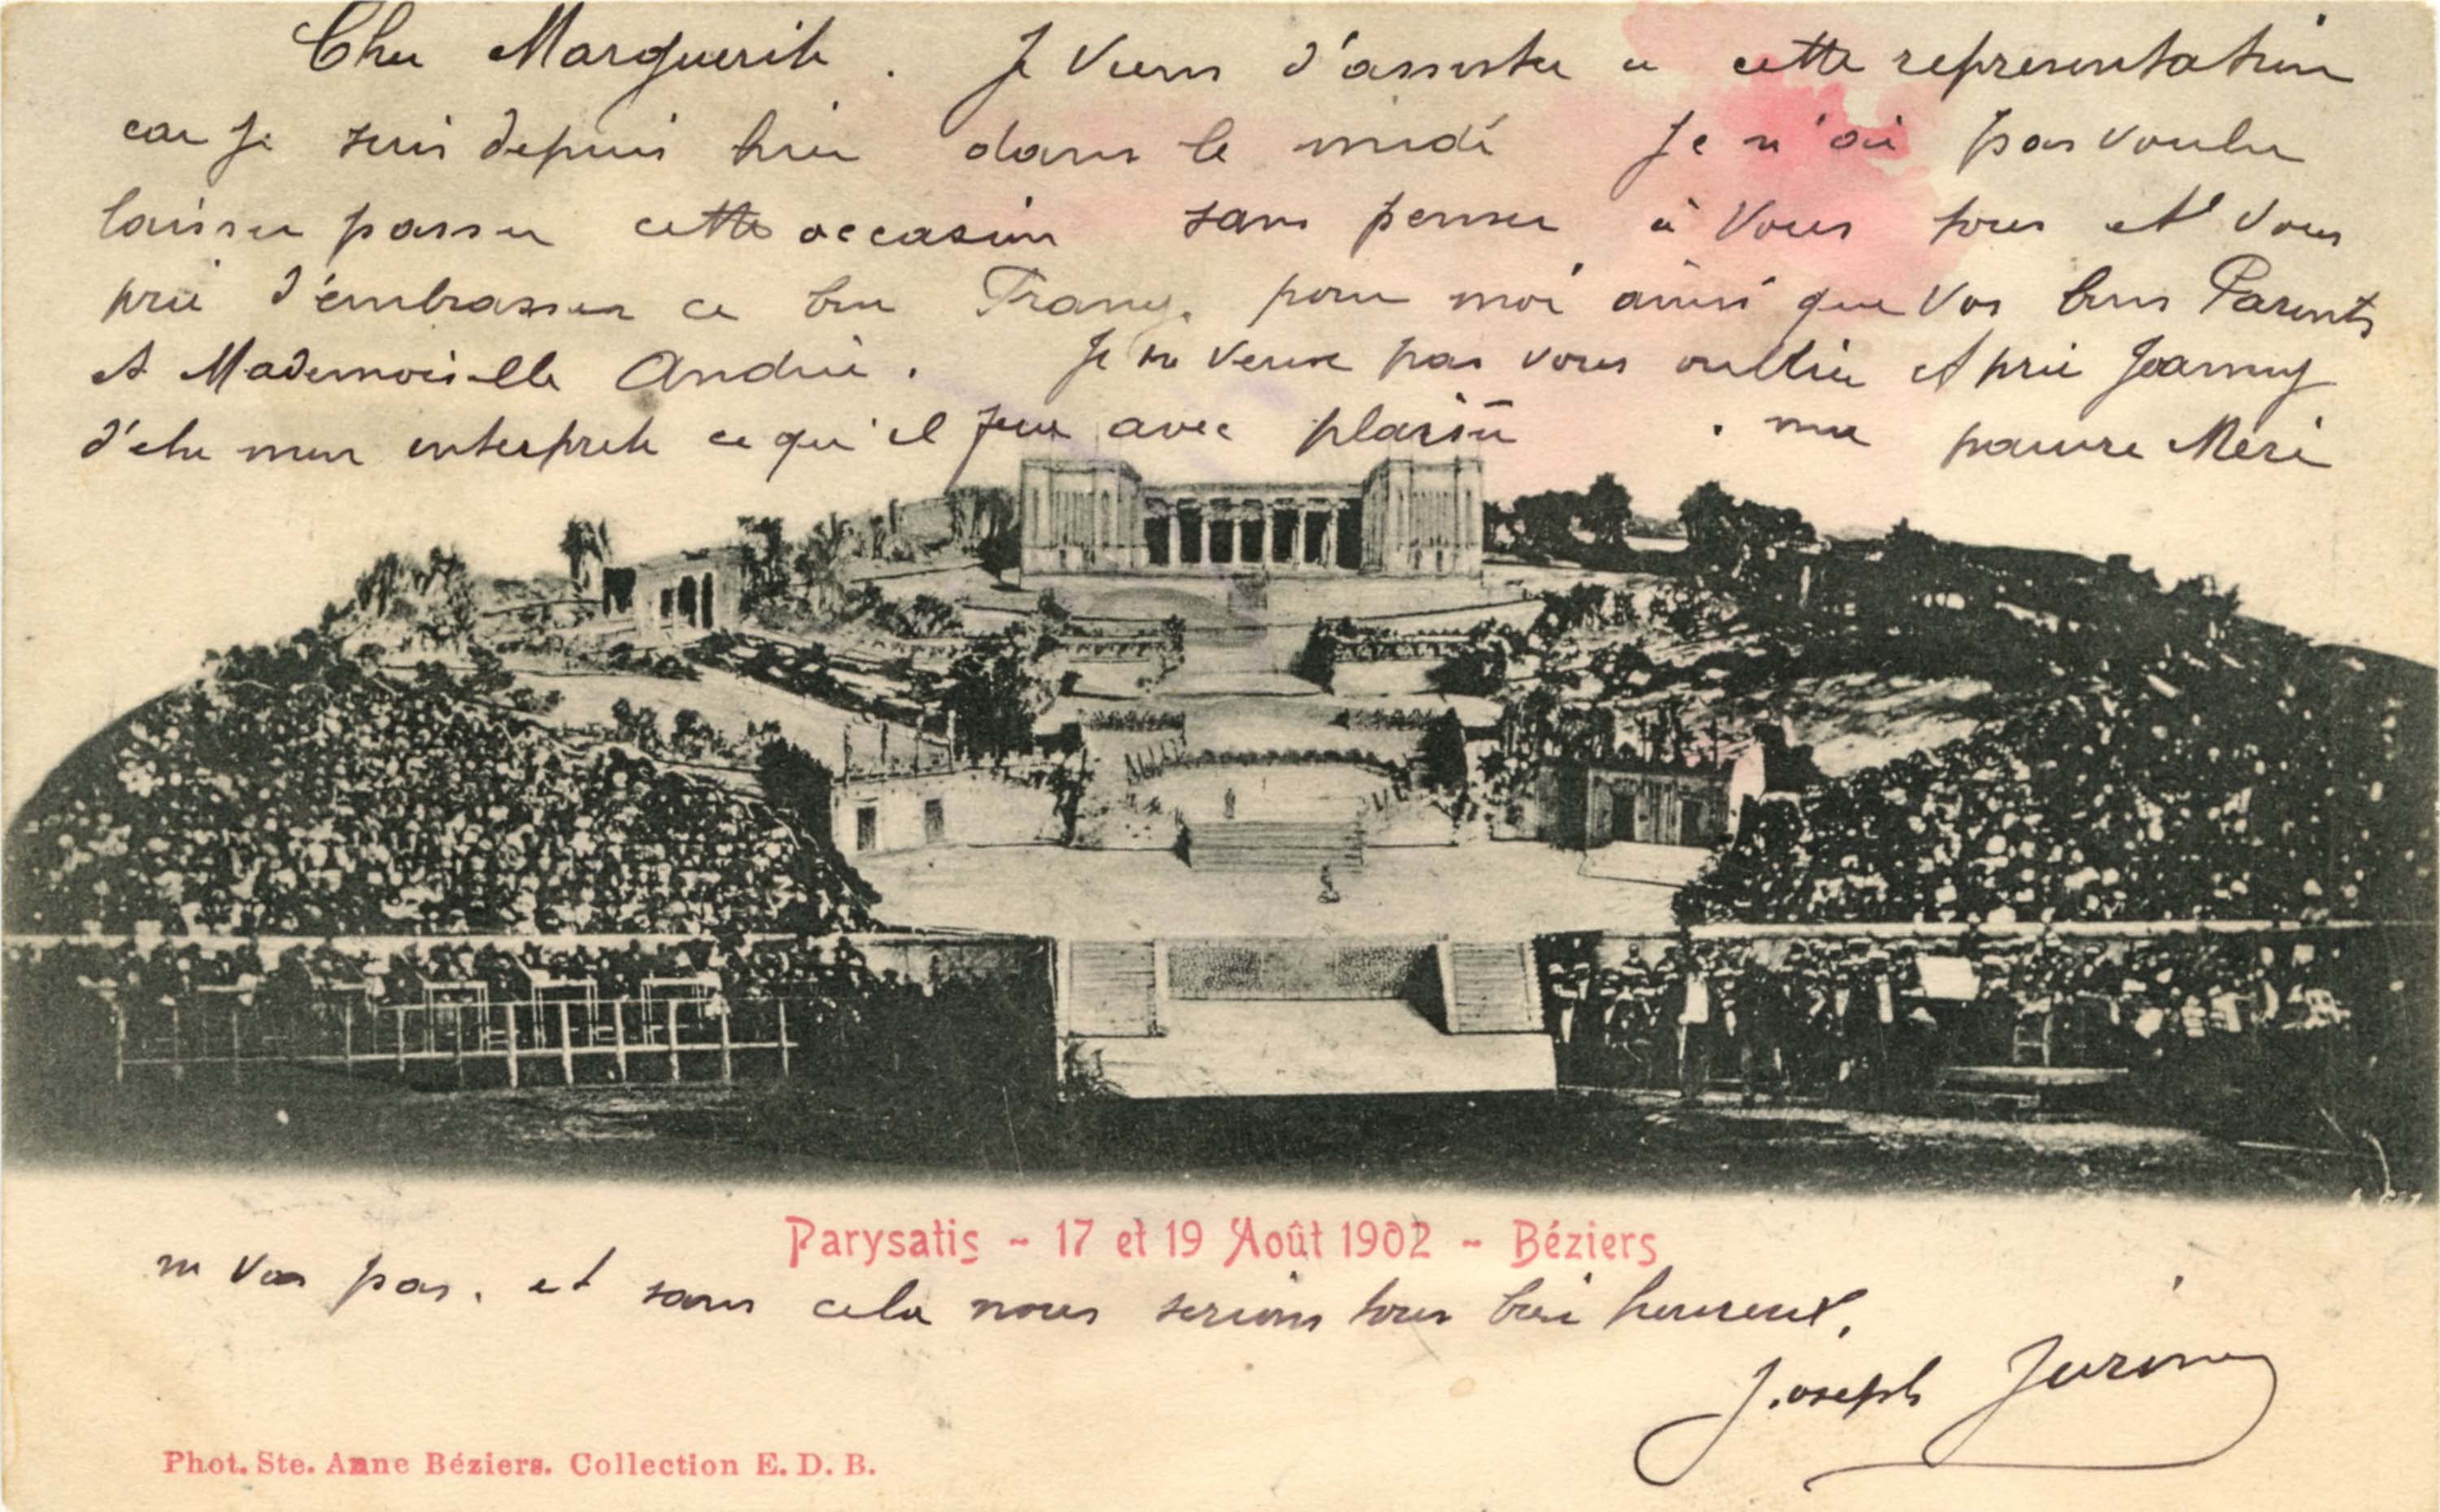 Cher Marguerite. Je viens d'assister a cette representation
car je suis depuis hier dans le midi Je n'ai pas voulu
laisser passer cette occasion sans penser à Vous tous et Vous
prie d'embrasser ce bon pour moi ainsi que Vos bons Parents
et Mademoiselle Andrée. Je ne veux pas vous oublier et prie Joanny
d'etre mon interprete ce qu'il fera avec plaisir. ma pauvre Mère
Parysatis - 17 et 19 Août 1902 - Béziers
ne vas pas. et sans cela nous serions tous bien heureux.
Joseph
Phot. Ste. Anne Béziers. Collection E. D. B.